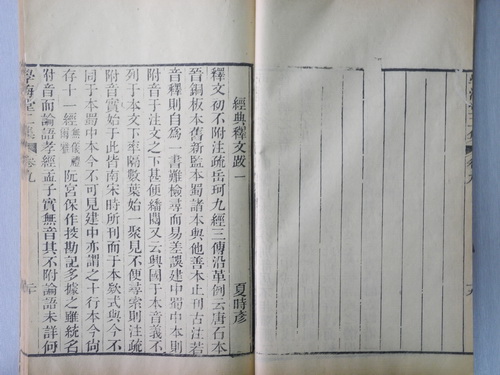 經典釋文跋一
夏時彥
釋文初不附注疏岳珂九經三傳沿革例云唐石本
晉銅板本舊新監本蜀諸本與他善本止刊古注若
音釋則自為一書難檢尋而易差誤建中蜀中本則
附音于注文之下甚便繙閱又云興國于本音義不
列于本文下率隔數葉始一聚見不便尋索則注疏
附音實始于此皆南宋時所刊而于本欵式與今不
同于本蜀中本今不可見建中亦謂之十行本今尙
存十一經無儀禮爾雅阮宮保作挍勘記多據之雖統名
附音而論語孝經孟子實無音其不附論語未詳何
學海堂二集
卷九